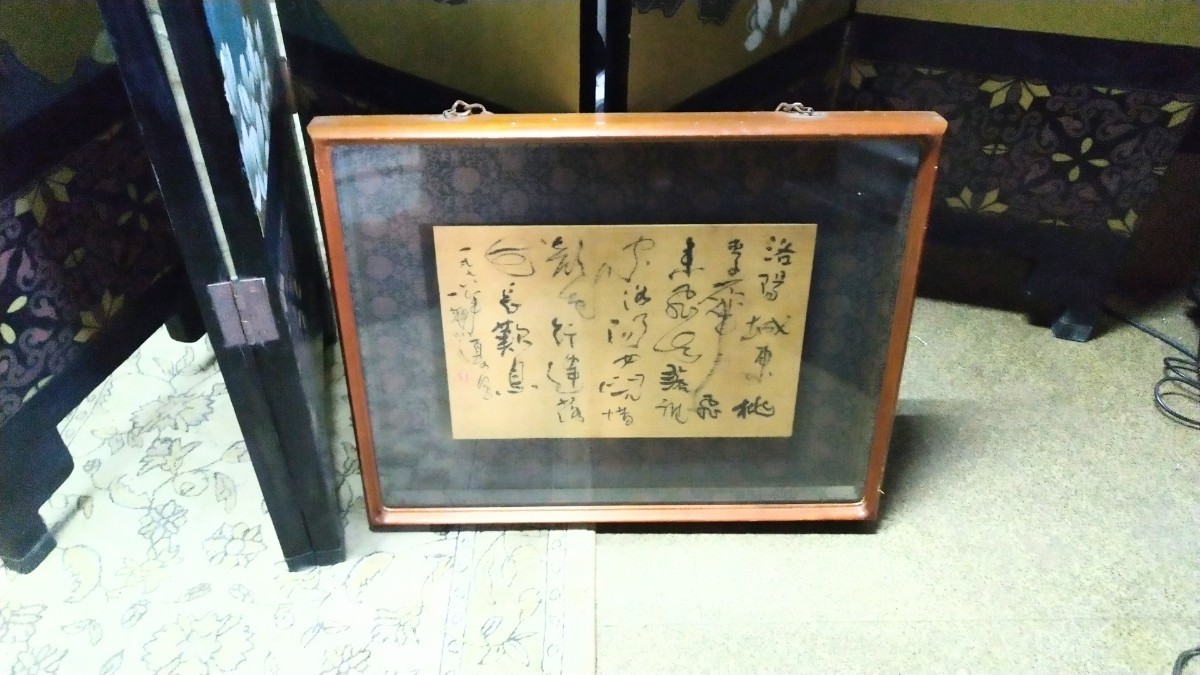 洛陽城東桃
李花飛
来飛去落誰
家洛陽女兒惜
顏色行逢落
花長歎息
一九七年夏